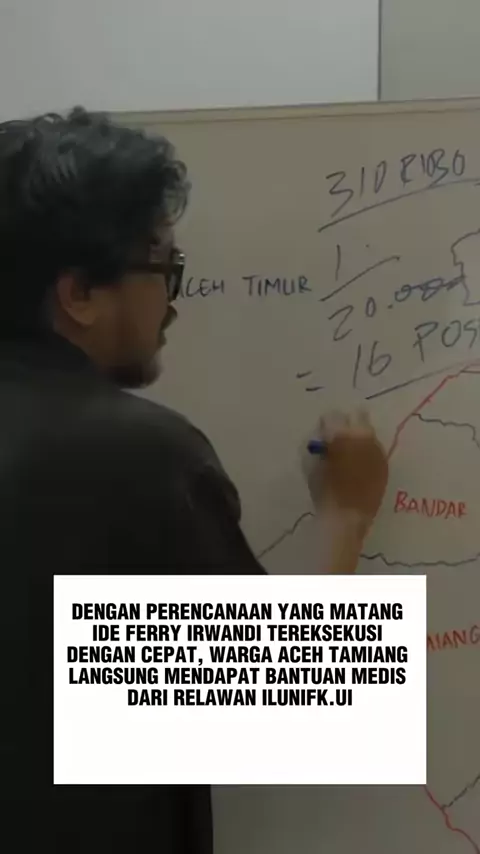 310 RIBO
ACEH TIMUR
1
20.000
= 16 POS
BANDAR
MIANG
DENGAN PERENCANAAN YANG MATANG
IDE FERRY IRWANDI TEREKSEKUSI
DENGAN CEPAT, WARGA ACEH TAMIANG
LANGSUNG MENDAPAT BANTUAN MEDIS
DARI RELAWAN ILUNIFK.UI